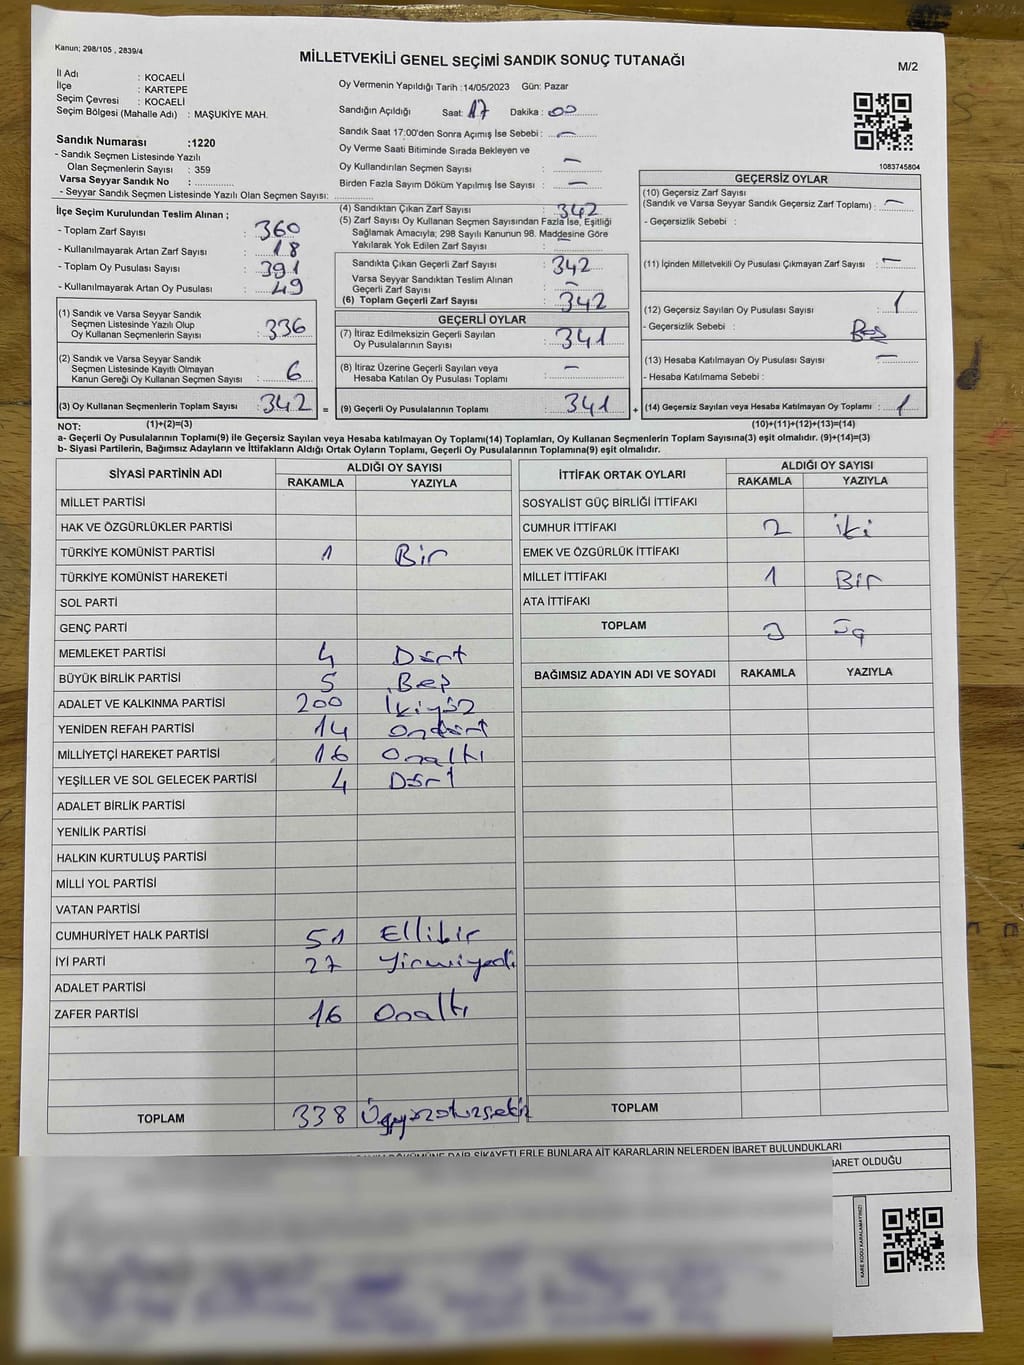 Kanun; 298/105 , 2839/4
MİLLETVEKİLİ GENEL SEÇİMİ SANDIK SONUÇ TUTANAĞI
M/2
İl Adı : KOCAELİ
İlçe : KARTEPE
Seçim Çevresi : KOCAELİ
Seçim Bölgesi (Mahalle Adı) : MAŞUKİYE MAH.
Sandık Numarası :1220
- Sandık Seçmen Listesinde Yazılı
Olan Seçmenlerin Sayısı : 359
Varsa Seyyar Sandık No :
- Seyyar Sandık Seçmen Listesinde Yazılı Olan Seçmen Sayısı:
Oy Vermenin Yapıldığı Tarih :14/05/2023 Gün: Pazar
Sandığın Açıldığı Saat: 17 Dakika : 00
Sandık Saat 17:00'den Sonra Açımış İse Sebebi : —
Oy Verme Saati Bitiminde Sırada Bekleyen ve
Oy Kullandırılan Seçmen Sayısı : —
Birden Fazla Sayım Döküm Yapılmış İse Sayısı : —
1083745804
İlçe Seçim Kurulundan Teslim Alınan ;
- Toplam Zarf Sayısı : 360
- Kullanılmayarak Artan Zarf Sayısı : 18
- Toplam Oy Pusulası Sayısı : 391
- Kullanılmayarak Artan Oy Pusulası : 49
(1) Sandık ve Varsa Seyyar Sandık
Seçmen Listesinde Yazılı Olup
Oy Kullanan Seçmenlerin Sayısı : 336
(2) Sandık ve Varsa Seyyar Sandık
Seçmen Listesinde Kayıtlı Olmayan
Kanun Gereği Oy Kullanan Seçmen Sayısı : 6
(3) Oy Kullanan Seçmenlerin Toplam Sayısı : 342 =
(1)+(2)=(3)
(4) Sandıktan Çıkan Zarf Sayısı : 342
(5) Zarf Sayısı Oy Kullanan Seçmen Sayısından Fazla İse, Eşitliği
Sağlamak Amacıyla; 298 Sayılı Kanunun 98. Maddesine Göre
Yakılarak Yok Edilen Zarf Sayısı : —
Sandıkta Çıkan Geçerli Zarf Sayısı : 342
Varsa Seyyar Sandıktan Teslim Alınan
Geçerli Zarf Sayısı : —
(6) Toplam Geçerli Zarf Sayısı : 342
GEÇERLİ OYLAR
(7) İtiraz Edilmeksizin Geçerli Sayılan
Oy Pusulalarının Sayısı : 341
(8) İtiraz Üzerine Geçerli Sayılan veya
Hesaba Katılan Oy Pusulası Toplamı : —
(9) Geçerli Oy Pusulalarının Toplamı : 341 +
GEÇERSİZ OYLAR
(10) Geçersiz Zarf Sayısı
(Sandık ve Varsa Seyyar Sandık Geçersiz Zarf Toplamı) : —
- Geçersizlik Sebebi :
(11) İçinden Milletvekili Oy Pusulası Çıkmayan Zarf Sayısı : —
(12) Geçersiz Sayılan Oy Pusulası Sayısı : 1
- Geçersizlik Sebebi : Boş
(13) Hesaba Katılmayan Oy Pusulası Sayısı : —
- Hesaba Katılmama Sebebi :
(14) Geçersiz Sayılan veya Hesaba Katılmayan Oy Toplamı : 1
(10)+(11)+(12)+(13)=(14)
NOT:
a- Geçerli Oy Pusulalarının Toplamı(9) ile Geçersiz Sayılan veya Hesaba katılmayan Oy Toplamı(14) Toplamları, Oy Kullanan Seçmenlerin Toplam Sayısına(3) eşit olmalıdır. (9)+(14)=(3)
b- Siyasi Partilerin, Bağımsız Adayların ve İttifakların Aldığı Oy Toplamı, Geçerli Oy Pusulalarının Toplamına(9) eşit olmalıdır.
SİYASİ PARTİNİN ADI ALDIĞI OY SAYISI
RAKAMLA YAZIYLA
MİLLET PARTİSİ
HAK VE ÖZGÜRLÜKLER PARTİSİ
TÜRKİYE KOMÜNİST PARTİSİ 1 Bir
TÜRKİYE KOMÜNİST HAREKETİ
SOL PARTİ
GENÇ PARTİ
MEMLEKET PARTİSİ 4 Dört
BÜYÜK BİRLİK PARTİSİ 5 Beş
ADALET VE KALKINMA PARTİSİ 200 İkiyüz
YENİDEN REFAH PARTİSİ 14 Ondört
MİLLİYETÇİ HAREKET PARTİSİ 16 Onaltı
YEŞİLLER VE SOL GELECEK PARTİSİ 4 Dört
ADALET BİRLİK PARTİSİ
YENİLİK PARTİSİ
HALKIN KURTULUŞ PARTİSİ
MİLLİ YOL PARTİSİ
VATAN PARTİSİ
CUMHURİYET HALK PARTİSİ 51 Ellibir
İYİ PARTİ 27 Yirmiyedi
ADALET PARTİSİ
ZAFER PARTİSİ 16 Onaltı
TOPLAM 338 Üçyüzotuzsekiz
İTTİFAK ORTAK OYLARI ALDIĞI OY SAYISI
RAKAMLA YAZIYLA
SOSYALİST GÜÇ BİRLİĞİ İTTİFAKI
CUMHUR İTTİFAKI 2 İki
EMEK VE ÖZGÜRLÜK İTTİFAKI
MİLLET İTTİFAKI 1 Bir
ATA İTTİFAKI
TOPLAM 3 Üç
BAĞIMSIZ ADAYIN ADI VE SOYADI RAKAMLA YAZIYLA
TOPLAM
DÖKÜMÜNE DAİR ŞİKAYETLERLE BUNLARA AİT KARARLARIN NELERDEN İBARET BULUNDUKLARI
İBARET OLDUĞU
KARE KODU KARALAMAYINIZ!